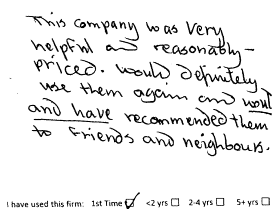 This company was very
helpful and reasonably-
priced. Would definitely
use them again and would
and have recommended them
to friends and neighbours.
I have used this firm: 1st Time ☑ <2 yrs ☐ 2-4 yrs ☐ 5+ yrs ☐